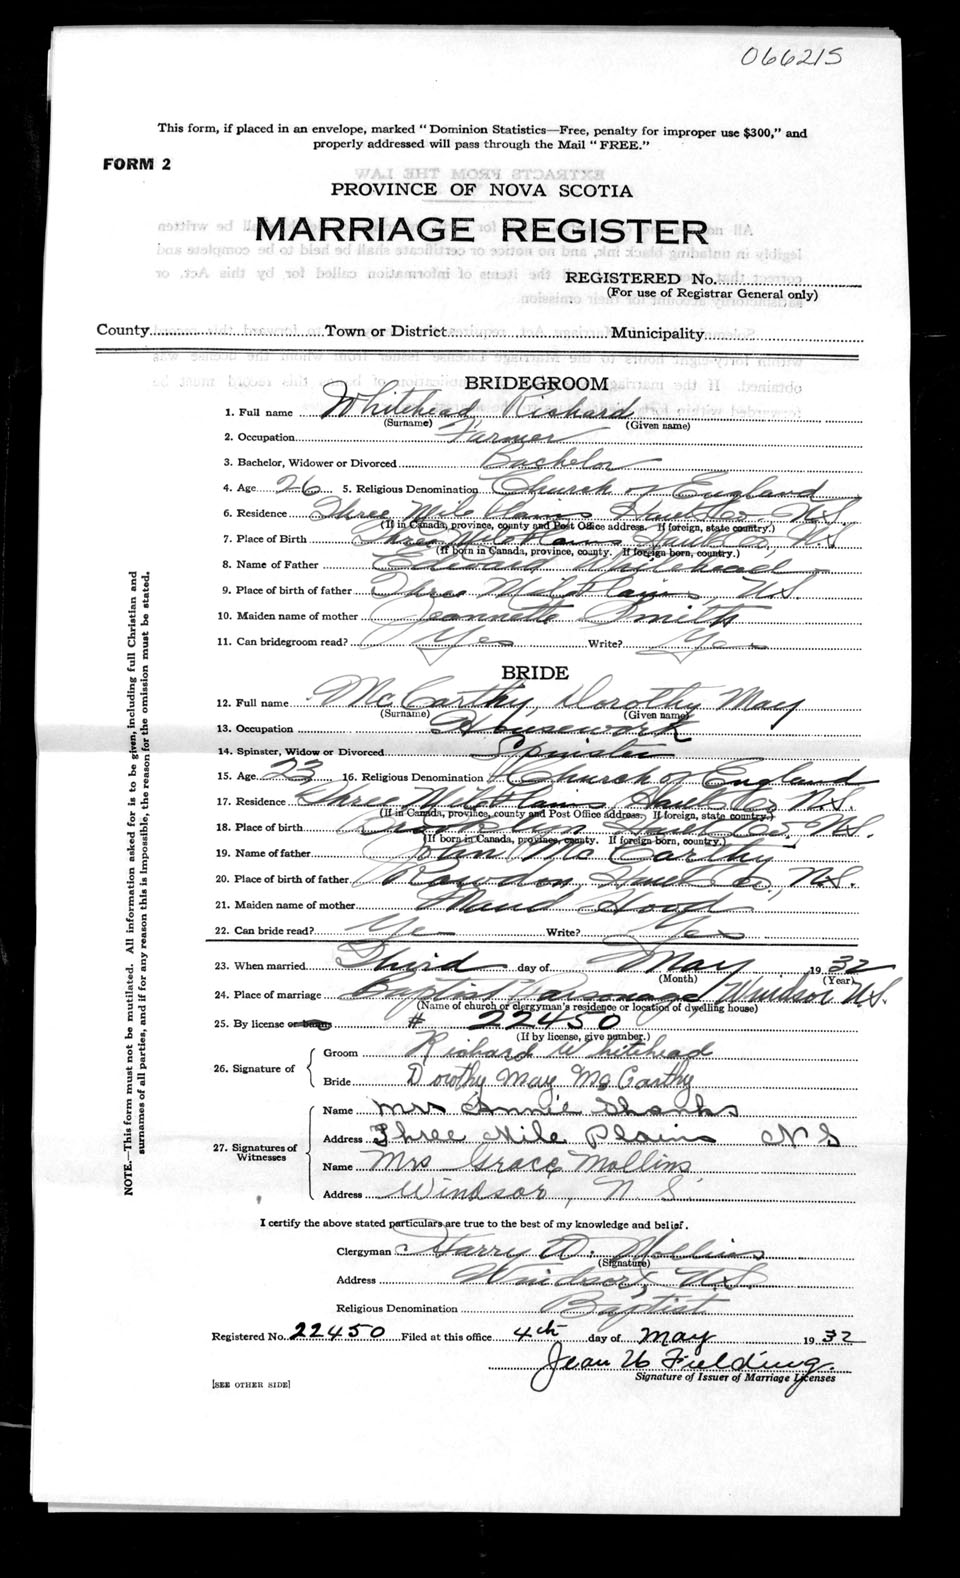 066215
This form, if placed in an envelope, marked "Dominion Statistics—Free, penalty for improper use $300," and
properly addressed will pass through the Mail "FREE."
FORM 2
PROVINCE OF NOVA SCOTIA
MARRIAGE REGISTER
REGISTERED No.
(For use of Registrar General only)
County Town or District Municipality
BRIDEGROOM
1. Full name Whitehead Richard
(Surname) (Given name)
2. Occupation Farmer
3. Bachelor, Widower or Divorced Bachelor
4. Age 26 5. Religious Denomination Church of England
6. Residence Three Mile Plains Hants Co. N.S.
(If in Canada, province, county and Post Office address. If foreign, state country.)
7. Place of Birth Three Mile Plains Hants Co, N.S
(If born in Canada, province, county. If foreign born, country.)
8. Name of Father Edward Whitehead
9. Place of birth of father Three Mile Plains, N.S.
10. Maiden name of mother Jeannette Smith
11. Can bridegroom read? Yes Write? Yes
BRIDE
12. Full name McCarthy, Dorothy May
(Surname) (Given name)
13. Occupation Housework
14. Spinster, Widow or Divorced Spinster
15. Age 23 16. Religious Denomination Church of England
17. Residence Three Mile Plains, Hants Co N.S.
(If in Canada, province, county and Post Office address. If foreign, state country.)
18. Place of birth Brooklyn Hants Co., N.S.
(If born in Canada, province, county. If foreign born, country.)
19. Name of father John McCarthy
20. Place of birth of father Rawdon, Hants Co., N.S.
21. Maiden name of mother Maud Hood
22. Can bride read? Yes Write? Yes
23. When married Third day of May 1932
(Month) (Year)
24. Place of marriage Baptist Parsonage Windsor N.S.
(Name of church or clergyman's residence or location of dwelling house)
25. By license or banns # 22450
(If by license, give number.)
26. Signature of Groom Richard Whitehead
Bride Dorothy May McCarthy
27. Signatures of Witnesses Name Mrs Annie Shanks
Address Three Mile Plains N S
Name Mrs Grace Mollins
Address Windsor, N. S.
I certify the above stated particulars are true to the best of my knowledge and belief.
Clergyman Harry A. Mollins
(Signature)
Address Windsor, N.S.
Religious Denomination Baptist
Registered No. 22450 Filed at this office 4th day of May 1932
Jean W Fielding
Signature of Issuer of Marriage Licenses
[SEE OTHER SIDE]
NOTE.—This form must not be mutilated. All information asked for is to be given, including full Christian and
surnames of all parties, and if for any reason this is impossible, the reason for the omission must be stated.